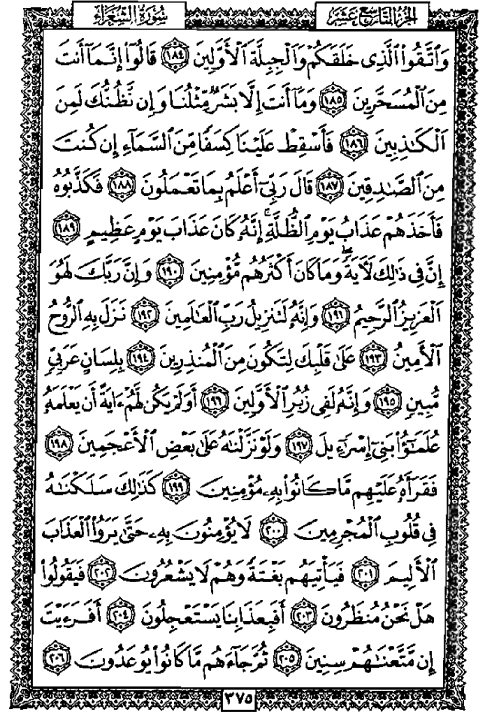 سُورَةُ الشُّعَرَاءِ
الجُزءُ التَّاسِعَ عَشَرَ
وَاتَّقُوا الَّذِي خَلَقَكُمْ وَالْجِبِلَّةَ الْأَوَّلِينَ ١٨٤ قَالُوا إِنَّمَا أَنتَ
مِنَ الْمُسَحَّرِينَ ١٨٥ وَمَا أَنتَ إِلَّا بَشَرٌ مِّثْلُنَا وَإِن نَّظُنُّكَ لَمِنَ
الْكَاذِبِينَ ١٨٦ فَأَسْقِطْ عَلَيْنَا كِسَفًا مِّنَ السَّمَاءِ إِن كُنتَ
مِنَ الصَّادِقِينَ ١٨٧ قَالَ رَبِّي أَعْلَمُ بِمَا تَعْمَلُونَ ١٨٨ فَكَذَّبُوهُ
فَأَخَذَهُمْ عَذَابُ يَوْمِ الظُّلَّةِ إِنَّهُ كَانَ عَذَابَ يَوْمٍ عَظِيمٍ ١٨٩
إِنَّ فِي ذَٰلِكَ لَآيَةً ۖ وَمَا كَانَ أَكْثَرُهُم مُّؤْمِنِينَ ١٩٠ وَإِنَّ رَبَّكَ لَهُوَ
الْعَزِيزُ الرَّحِيمُ ١٩١ وَإِنَّهُ لَتَنزِيلُ رَبِّ الْعَالَمِينَ ١٩٢ نَزَلَ بِهِ الرُّوحُ
الْأَمِينُ ١٩٣ عَلَىٰ قَلْبِكَ لِتَكُونَ مِنَ الْمُنذِرِينَ ١٩٤ بِلِسَانٍ عَرَبِيٍّ
مُّبِينٍ ١٩٥ وَإِنَّهُ لَفِي زُبُرِ الْأَوَّلِينَ ١٩٦ أَوَلَمْ يَكُن لَّهُمْ ءَايَةً أَن يَعْلَمَهُ
عُلَمَٰٓؤُا بَنِي إِسْرَٰٓءِيلَ ١٩٧ وَلَوْ نَزَّلْنَٰهُ عَلَىٰ بَعْضِ الْأَعْجَمِينَ ١٩٨
فَقَرَأَهُ عَلَيْهِم مَّا كَانُوا بِهِ مُؤْمِنِينَ ١٩٩ كَذَٰلِكَ سَلَكْنَٰهُ
فِي قُلُوبِ الْمُجْرِمِينَ ٢٠٠ لَا يُؤْمِنُونَ بِهِ حَتَّىٰ يَرَوُا الْعَذَابَ
الْأَلِيمَ ٢٠١ فَيَأْتِيَهُم بَغْتَةً وَهُمْ لَا يَشْعُرُونَ ٢٠٢ فَيَقُولُوا
هَلْ نَحْنُ مُنظَرُونَ ٢٠٣ أَفَبِعَذَابِنَا يَسْتَعْجِلُونَ ٢٠٤ أَفَرَءَيْتَ
إِن مَّتَّعْنَٰهُمْ سِنِينَ ٢٠٥ ثُمَّ جَاءَهُم مَّا كَانُوا يُوعَدُونَ ٢٠٦
٣٧٥